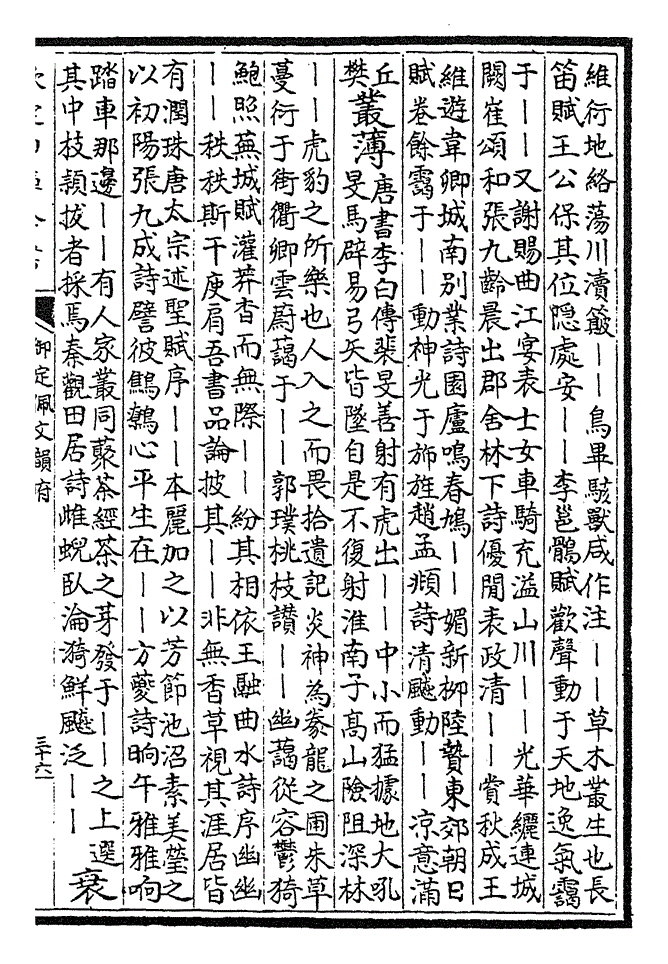 維衍地絡蕩川瀆簸――鳥畢駭獸咸作注――草木叢生也長
笛賦王公保其位隠處安――李邕鶻賦歡聲動于天地逸氣靄
于――又謝賜曲江宴表士女車騎充溢山川――光華纒連城
闕崔頌和張九齡晨出郡舍林下詩優閒表政清――賞秋成王
維遊韋卿城南别業詩園廬鳴春鳩――媚新栁陸贄東郊朝日
賦卷餘靄于――動神光于斾旌趙孟頫詩清飈動――凉意滿
丘
樊
叢薄
唐書李白傳裴旻善射有虎出――中小而猛據地大吼
旻馬辟易弓矢皆墜自是不復射淮南子髙山險阻深林
――虎豹之所樂也人入之而畏拾遺記炎神為豢龍之圃朱草
蔓衍于街衢卿雲蔚藹于――郭璞桃枝讃――幽藹從容鬱猗
鮑照蕪城賦灌莽杳而無際――紛其相依王融曲水詩序幽幽
――秩秩斯干庾肩吾書品論披其――非無香草視其涯居皆
有潤珠唐太宗述聖賦序――本麗加之以芳節池沼素美瑩之
以初陽張九成詩譬彼鷦鷯心平生在――方夔詩晌午雅雅响
踏車那邊――有人家叢同藂茶經茶之芽發于――之上選
其中枝穎拔者採焉秦觀田居詩雌蜺卧淪漪鮮飈泛――
衰
御定佩文韻府
三十六